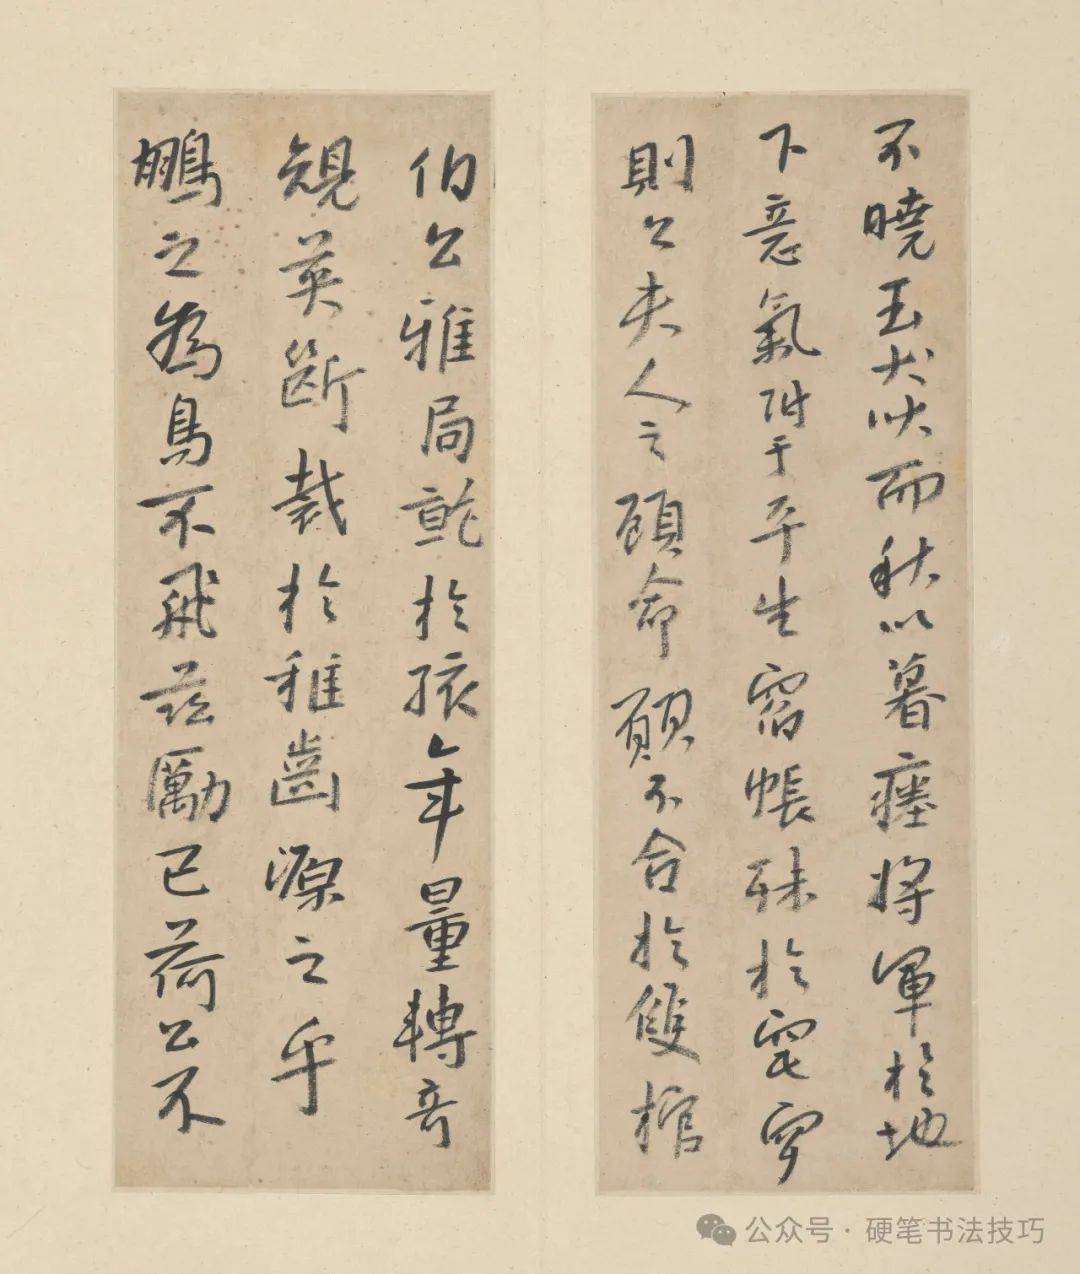 不曉玉犬吠而秋以暮瘞將軍於地
下意氣附于平生帳殊於窀穸
則公夫人之顧命願不合於雙棺
伯公雅局於孩年量轉奇
規英斷裁於稚齒源之乎
鵬之為鳥不飛茲勵已荷公不
公众号·硬笔书法技巧